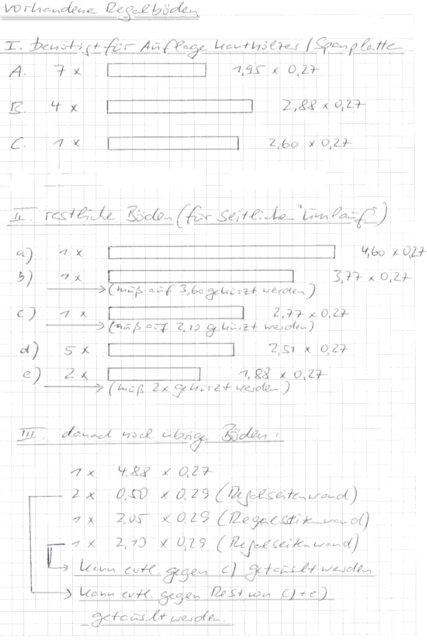 vorhandene Regalböden
I. benötigt für Auflage Kanthölzer/Spanplatte
A. 7 x 1,95 x 0,27
B. 4 x 2,88 x 0,27
C. 1 x 2,60 x 0,27
II. restliche Böden (für seitlichen "Umlauf")
a) 1 x 4,60 x 0,27
b) 1 x 3,77 x 0,27
(muß auf 3,60 gekürzt werden)
c) 1 x 2,77 x 0,27
(muß auf 2,10 gekürzt werden)
d) 5 x 2,51 x 0,27
e) 2 x 1,88 x 0,27
(muß 2x gekürzt werden)
III. danach noch übrige Böden:
1 x 4,88 x 0,27
2 x 0,50 x 0,29 (Regalseitenwand)
1 x 2,05 x 0,29 (Regalseitenwand)
1 x 2,10 x 0,29 (Regalseitenwand)
kann evtl. gegen c) getauscht werden
kann evtl. gegen Rest von c) + e)
getauscht werden.